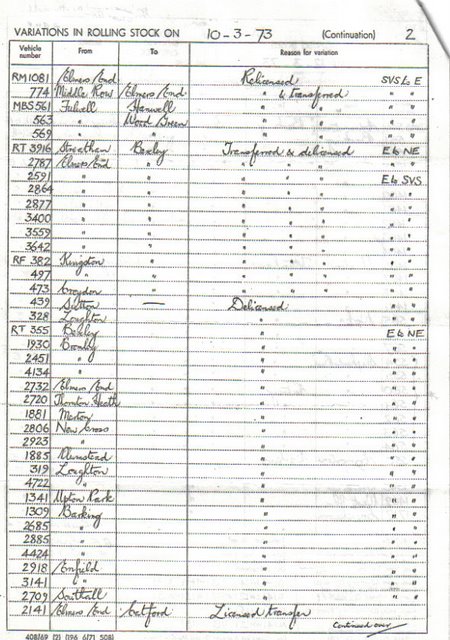 VARIATIONS IN ROLLING STOCK ON 10-3-73 (Continuation) 2
Vehicle number From To Reason for variation
RM1081 Elmers End Relicensed SVS to E
774 Middle Row Elmers End & transferred " "
MBS 561 Fulwell Hanwell " " " "
563 " Wood Green " " " "
569 " " " " " "
RT 3916 Streatham Bexley Transferred & delicensed E to NE
2787 Elmers End " " " " " "
2591 " " " " " E to SVS
2864 " " " " " " "
2877 " " " " " " "
3400 " " " " " " "
3559 " " " " " " "
3642 " " " " " " "
RF 382 Kingston " " " " " "
497 " " " " " " "
473 Croydon " " " " " "
439 Sutton — Delicensed " "
328 Loughton " " "
RT 355 Bexley " E to NE
1930 Bromley " " "
2451 " " " "
4134 " " " "
2732 Elmers End " " "
2720 Thornton Heath " " "
1881 Merton " " "
2806 New Cross " " "
2923 " " " "
1885 Plumstead " " "
319 Loughton " " "
4722 " " " "
1341 Upton Park " " "
1309 Barking " " "
2685 " " " "
2885 " " " "
4424 " " " "
2918 Enfield " " "
3141 " " " "
2709 Southall " " "
2141 Elmers End Catford Licensed transfer " "
Continued over
408/69 (2) (196 6171 508)